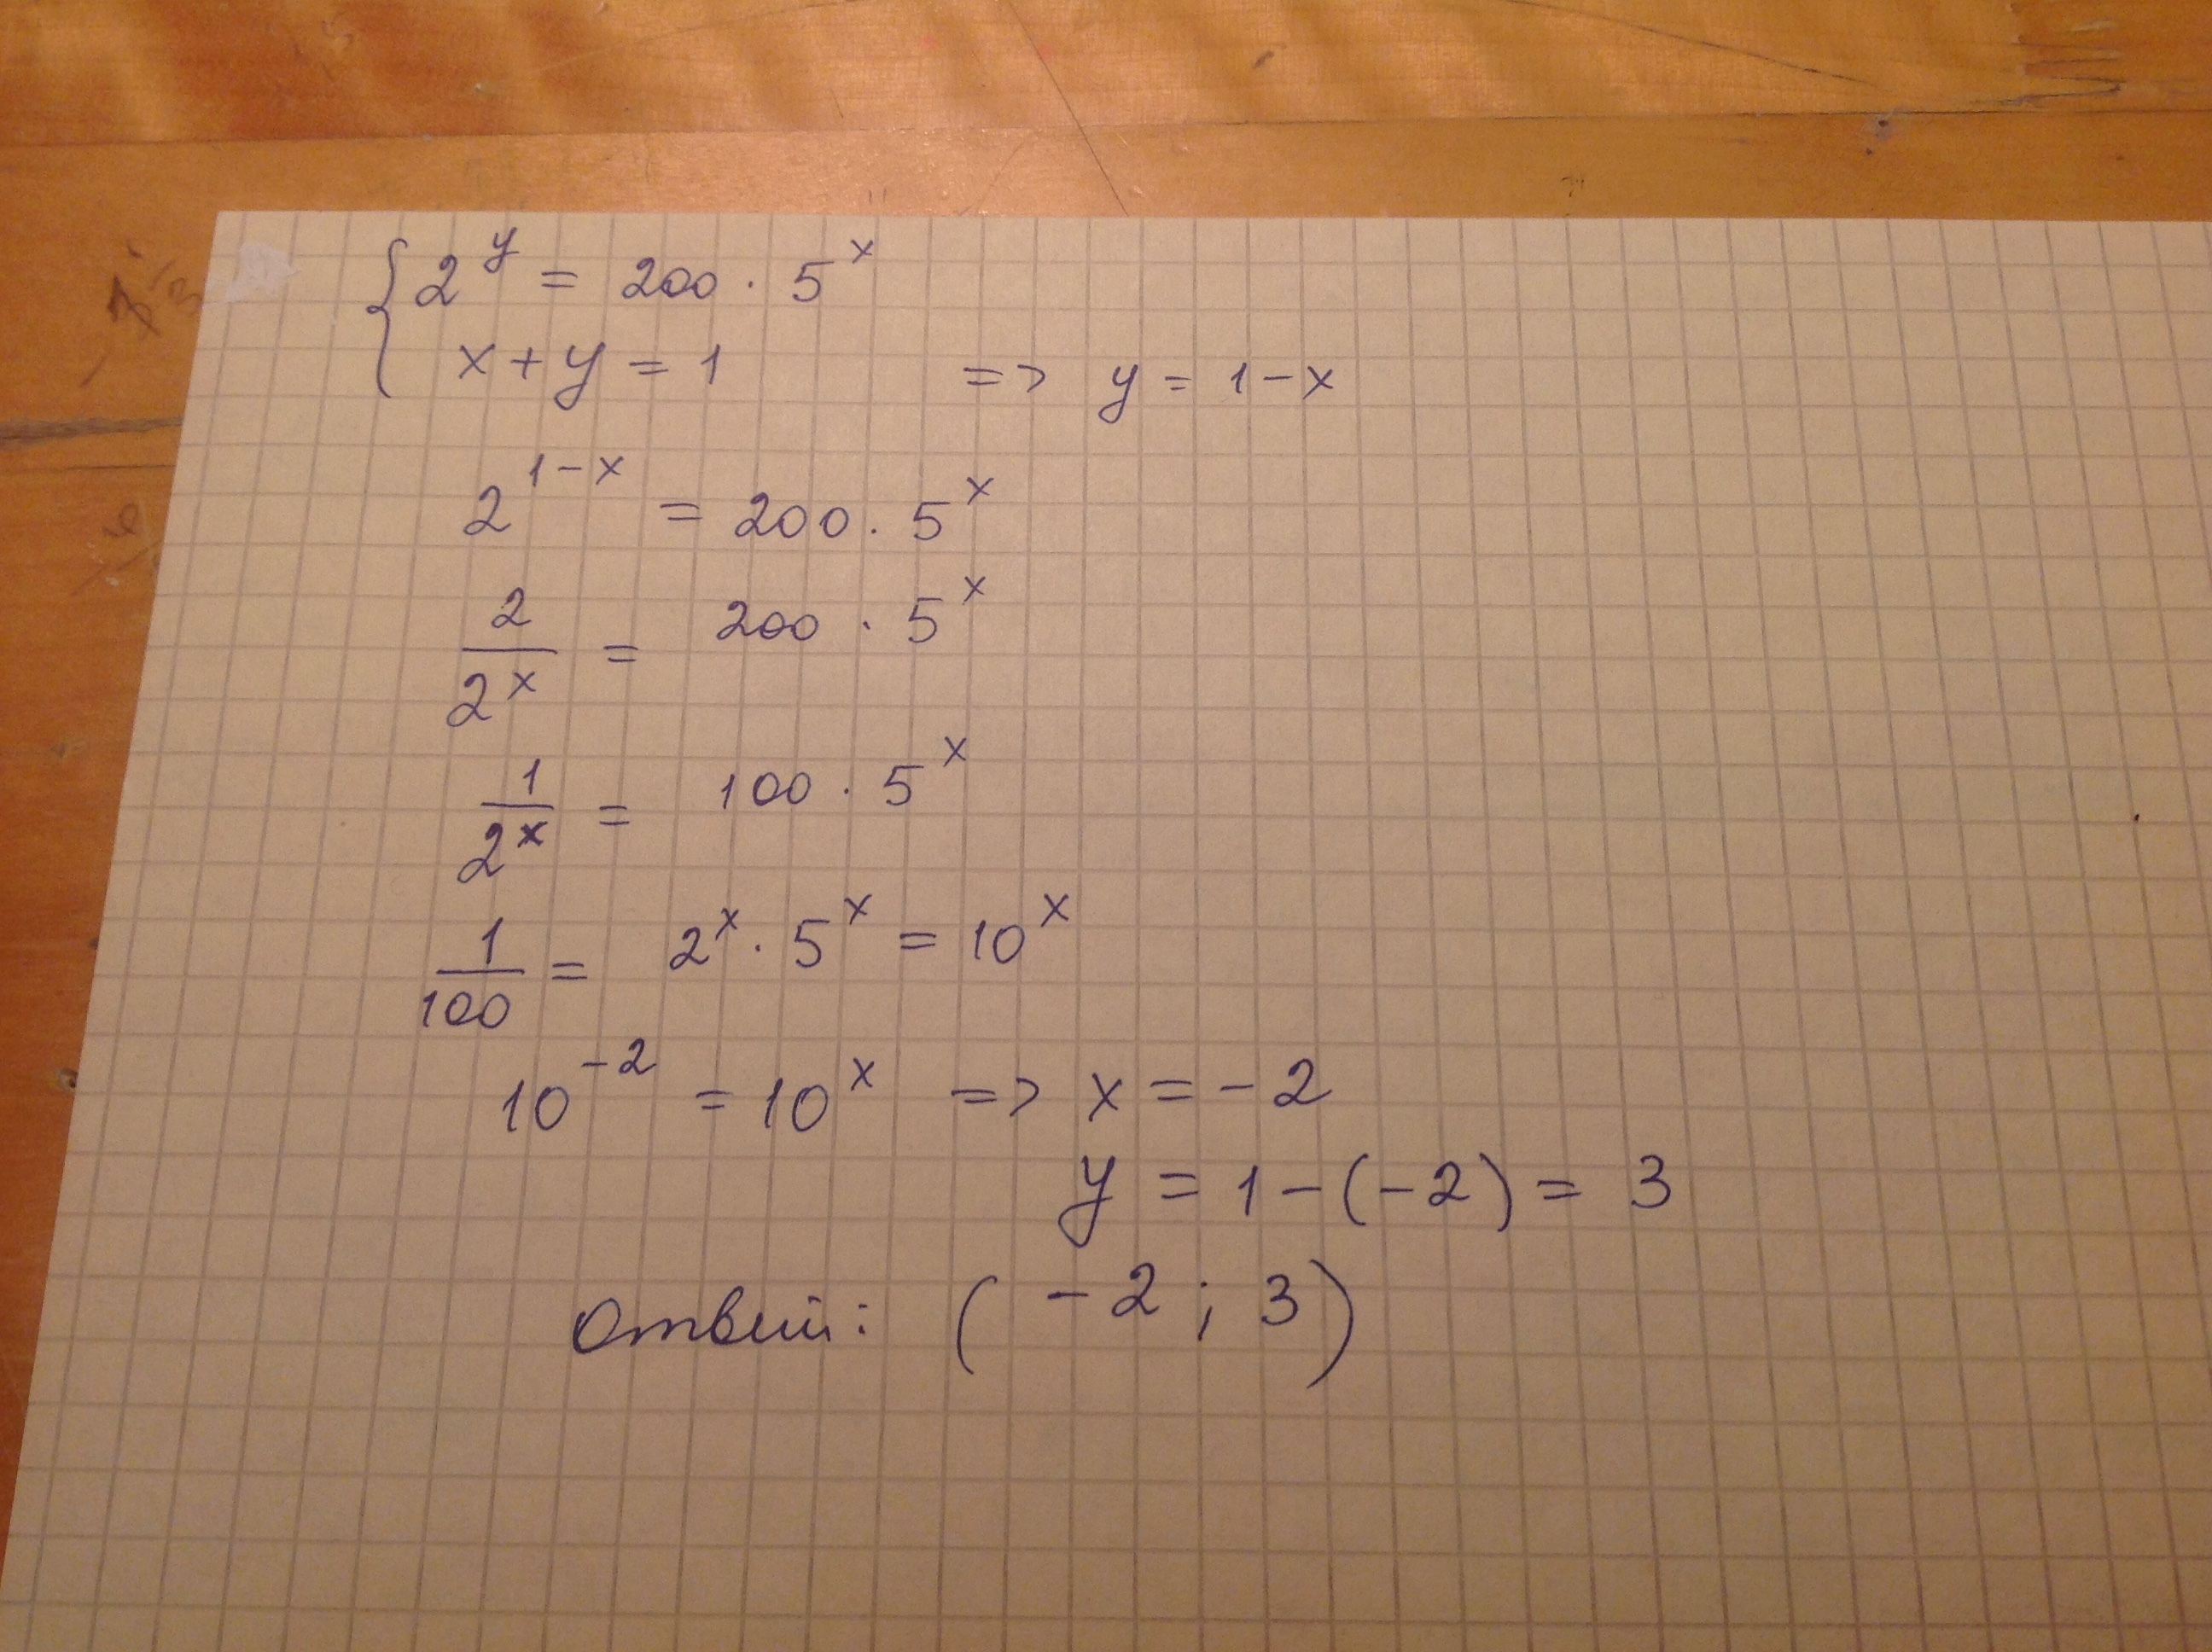 { 2^y = 200 · 5^x
x + y = 1 => y = 1 - x
2^(1-x) = 200 · 5^x
2/2^x = 200 · 5^x
1/2^x = 100 · 5^x
1/100 = 2^x · 5^x = 10^x
10^-2 = 10^x => x = -2
y = 1 - (-2) = 3
Ответ: (-2 ; 3)